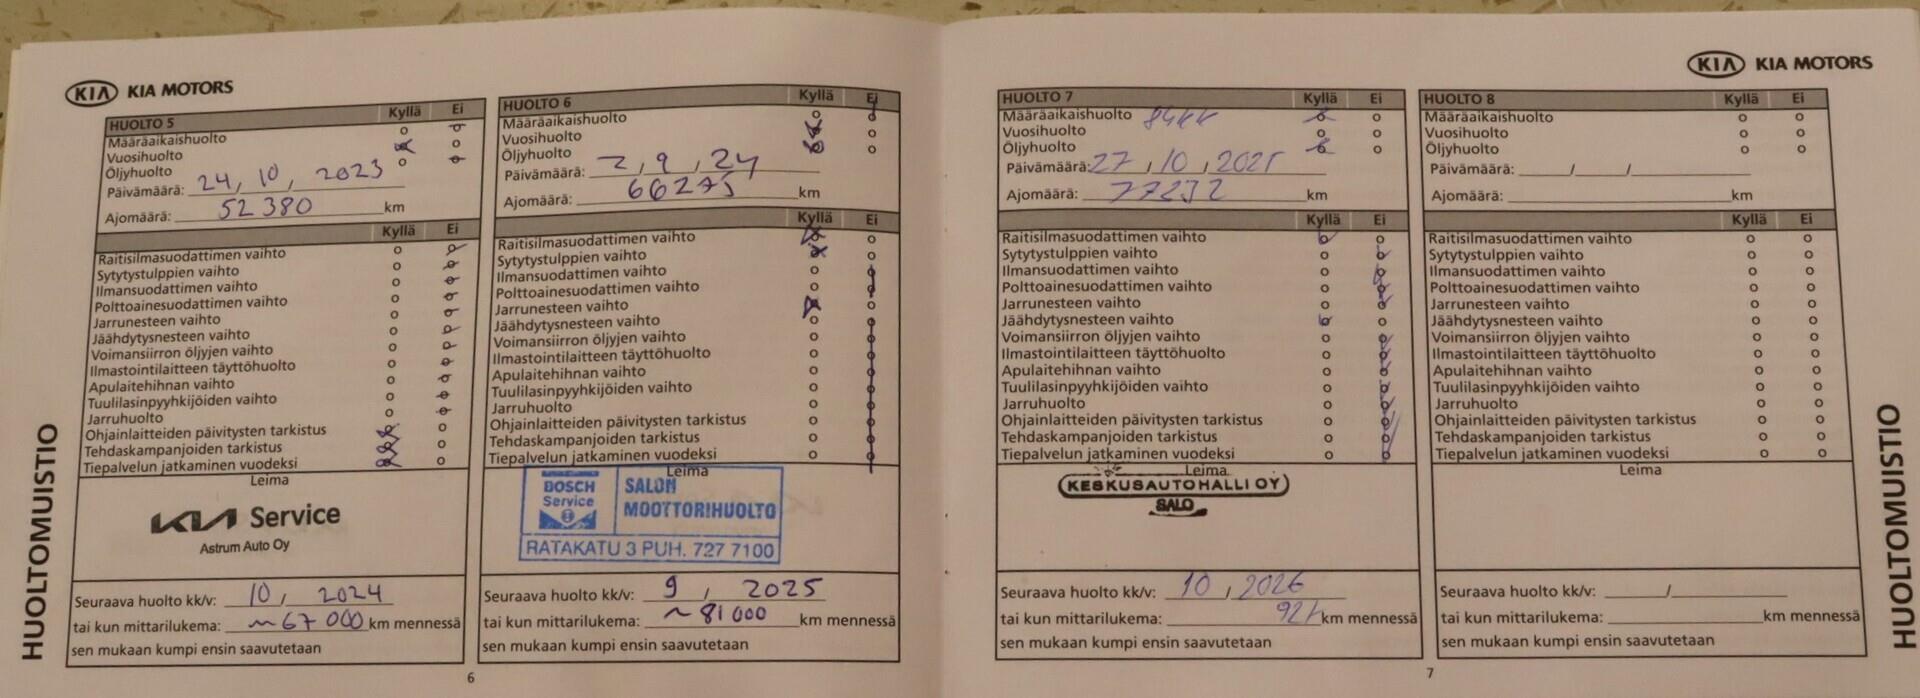 KIA KIA MOTORS
HUOLTO 5 Kyllä Ei
Määräaikaishuolto
Vuosihuolto
Öljyhuolto
Päivämäärä: 24, 10, 2023
Ajomäärä: 52 380 km
Kyllä Ei
Raitisilmasuodattimen vaihto
Sytytystulppien vaihto
Ilmansuodattimen vaihto
Polttoainesuodattimen vaihto
Jarrunesteen vaihto
Jäähdytysnesteen vaihto
Voimansiirron öljyjen vaihto
Ilmastointilaitteen täyttöhuolto
Apulaitehihnan vaihto
Tuulilasinpyyhkijöiden vaihto
Jarruhuolto
Ohjainlaitteiden päivitysten tarkistus
Tehdaskampanjoiden tarkistus
Tiepalvelun jatkaminen vuodeksi
Leima
KIA Service
Astrum Auto Oy
Seuraava huolto kk/v: 10, 2024
tai kun mittarilukema: ~ 67 000 km mennessä
sen mukaan kumpi ensin saavutetaan
HUOLTOMUISTIO
HUOLTO 6 Kyllä Ei
Määräaikaishuolto
Vuosihuolto
Öljyhuolto
Päivämäärä: 2, 9, 24
Ajomäärä: 66275 km
Kyllä Ei
Raitisilmasuodattimen vaihto
Sytytystulppien vaihto
Ilmansuodattimen vaihto
Polttoainesuodattimen vaihto
Jarrunesteen vaihto
Jäähdytysnesteen vaihto
Voimansiirron öljyjen vaihto
Ilmastointilaitteen täyttöhuolto
Apulaitehihnan vaihto
Tuulilasinpyyhkijöiden vaihto
Jarruhuolto
Ohjainlaitteiden päivitysten tarkistus
Tehdaskampanjoiden tarkistus
Tiepalvelun jatkaminen vuodeksi
Leima
BOSCH Service
SALON MOOTTORIHUOLTO
RATAKATU 3 PUH. 727 7100
Seuraava huolto kk/v: 9, 2025
tai kun mittarilukema: ~ 81 000 km mennessä
sen mukaan kumpi ensin saavutetaan
6
KIA KIA MOTORS
HUOLTO 7 Kyllä Ei
Määräaikaishuolto 84kk
Vuosihuolto
Öljyhuolto
Päivämäärä: 27, 10, 2025
Ajomäärä: 77232 km
Kyllä Ei
Raitisilmasuodattimen vaihto
Sytytystulppien vaihto
Ilmansuodattimen vaihto
Polttoainesuodattimen vaihto
Jarrunesteen vaihto
Jäähdytysnesteen vaihto
Voimansiirron öljyjen vaihto
Ilmastointilaitteen täyttöhuolto
Apulaitehihnan vaihto
Tuulilasinpyyhkijöiden vaihto
Jarruhuolto
Ohjainlaitteiden päivitysten tarkistus
Tehdaskampanjoiden tarkistus
Tiepalvelun jatkaminen vuodeksi
Leima
KESKUSAUTOHALLI OY
SALO
Seuraava huolto kk/v: 10, 2026
tai kun mittarilukema: km mennessä
sen mukaan kumpi ensin saavutetaan
HUOLTO 8 Kyllä Ei
Määräaikaishuolto
Vuosihuolto
Öljyhuolto
Päivämäärä: / /
Ajomäärä: km
Kyllä Ei
Raitisilmasuodattimen vaihto
Sytytystulppien vaihto
Ilmansuodattimen vaihto
Polttoainesuodattimen vaihto
Jarrunesteen vaihto
Jäähdytysnesteen vaihto
Voimansiirron öljyjen vaihto
Ilmastointilaitteen täyttöhuolto
Apulaitehihnan vaihto
Tuulilasinpyyhkijöiden vaihto
Jarruhuolto
Ohjainlaitteiden päivitysten tarkistus
Tehdaskampanjoiden tarkistus
Tiepalvelun jatkaminen vuodeksi
Leima
Seuraava huolto kk/v: /
tai kun mittarilukema: km mennessä
sen mukaan kumpi ensin saavutetaan
7
HUOLTOMUISTIO